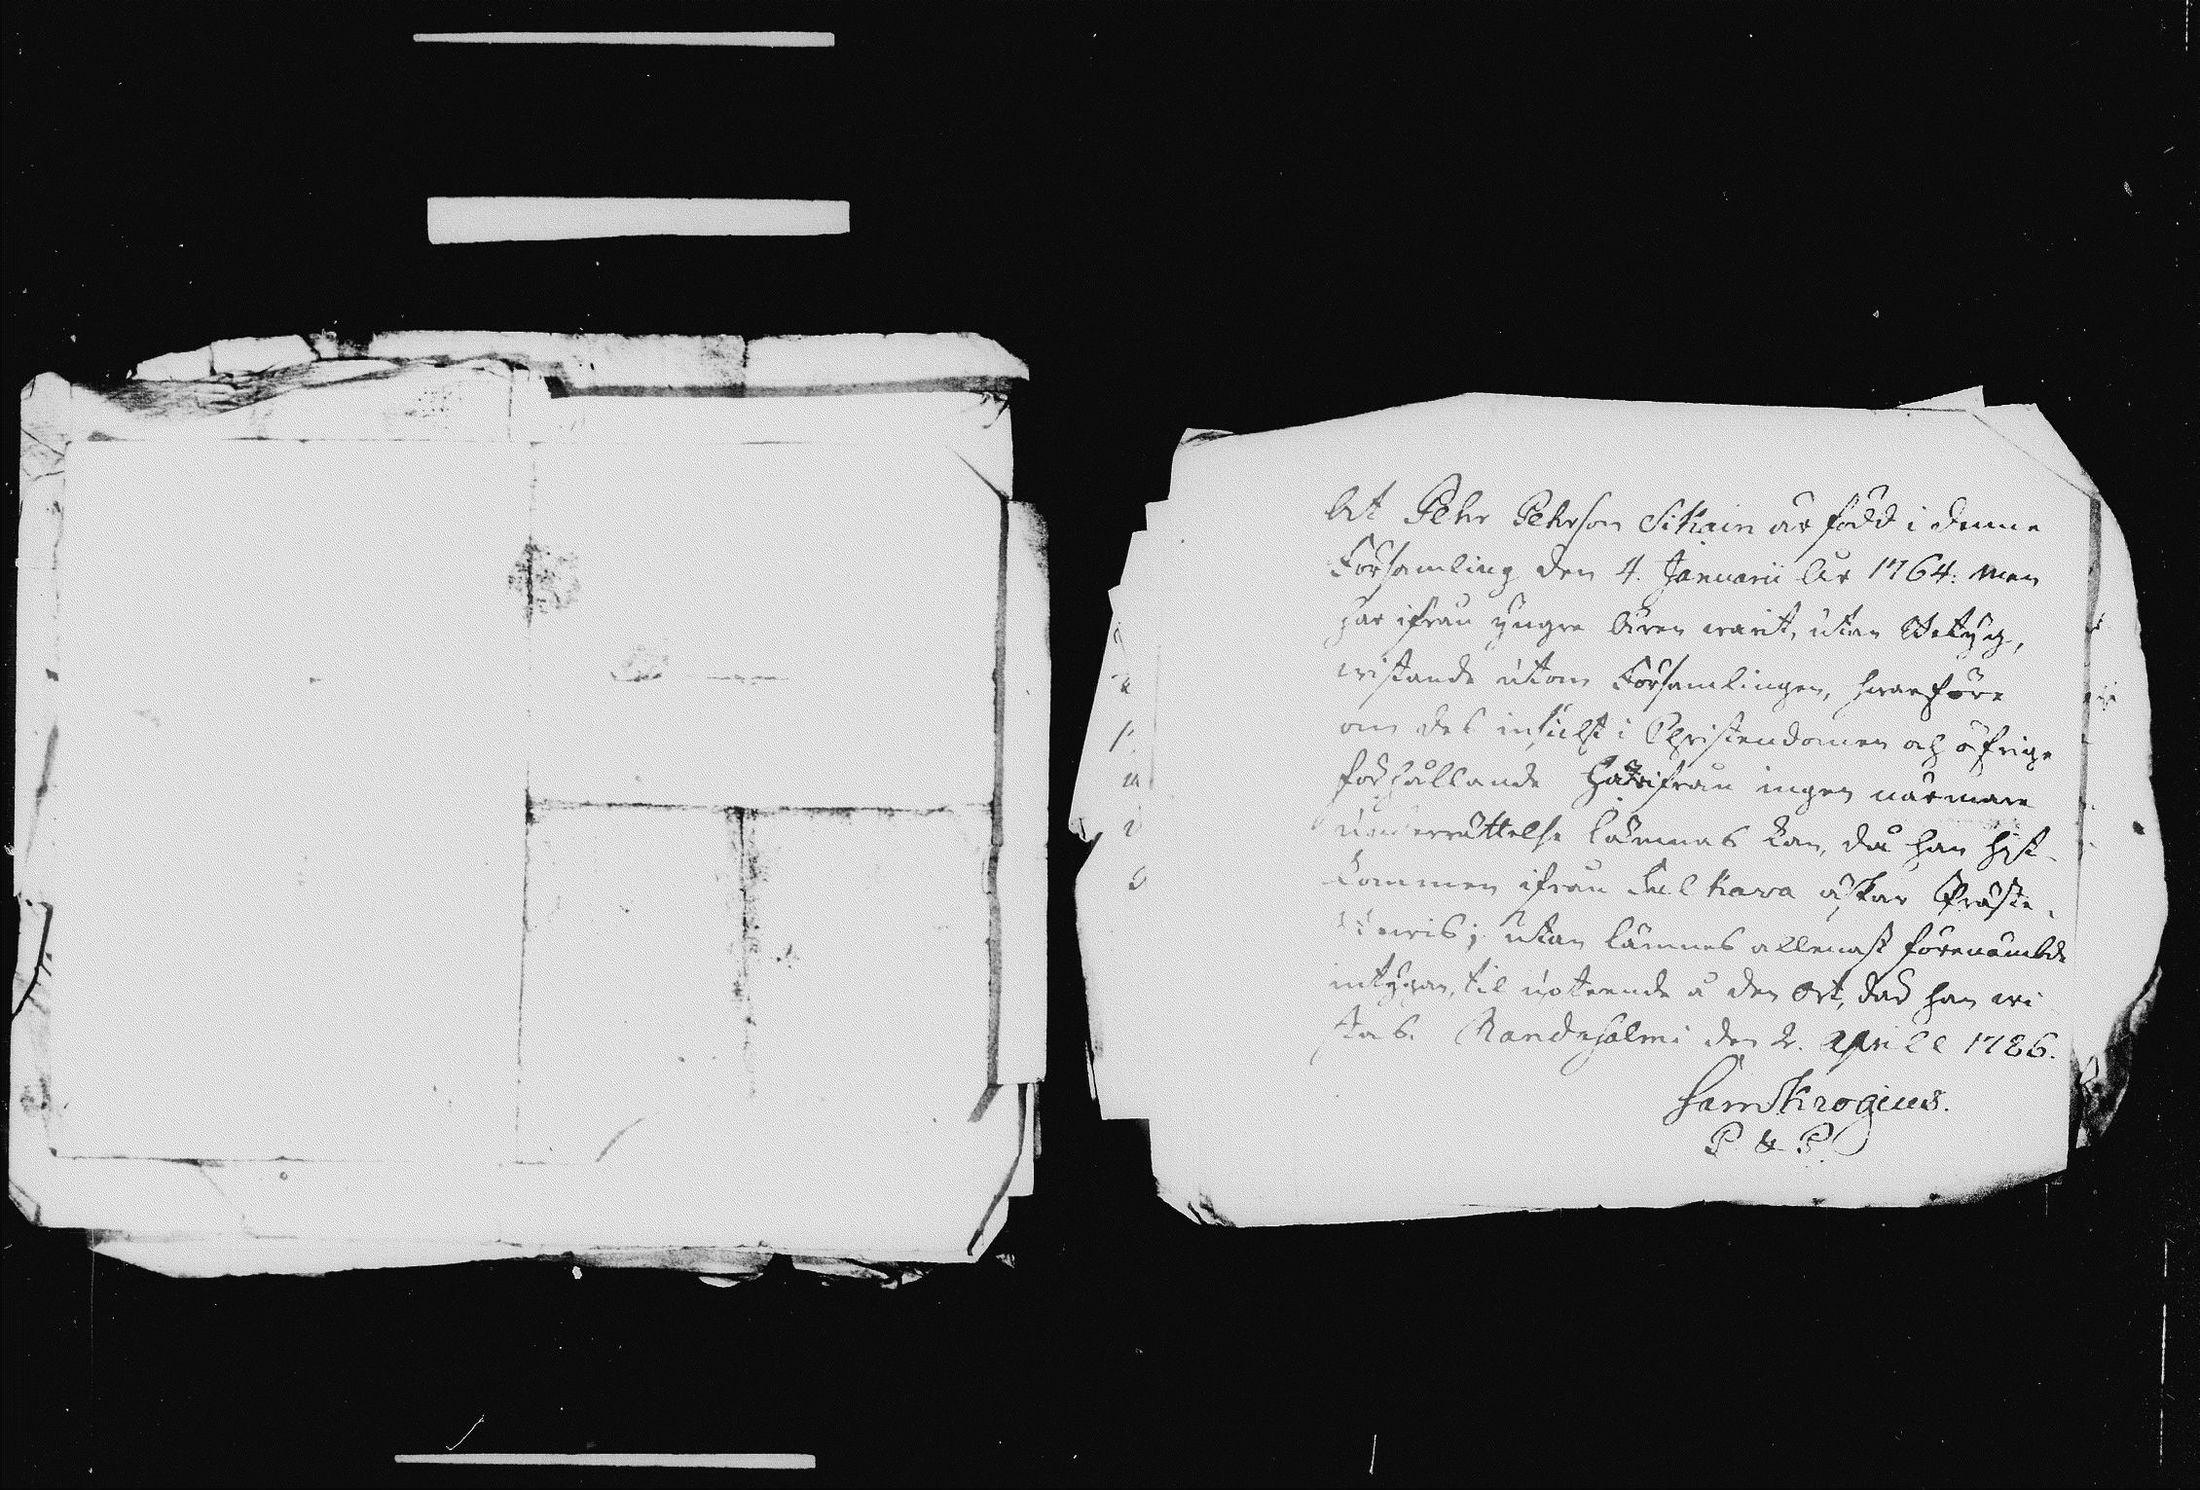 At Pehr Pehrson Sikain är född i denne
Församling den 4. Januarii År 1764: men
har ifrån yngre åren warit, utan Betyg,
wistande utom Församlingen, hwarföre
om des insickt i Christendomen och öfrige
förhållande härifrån ingen närmare
underrättelse lämnas kan, då han hit-
kommen ifrån äskar Präste-
bewis; utan lämnes allenast förenämbde
intygan, til upteende å den Ort, där han wi
stas. Randasalmi den 2. Aprill 1786.
Sam Krogius.
P & P